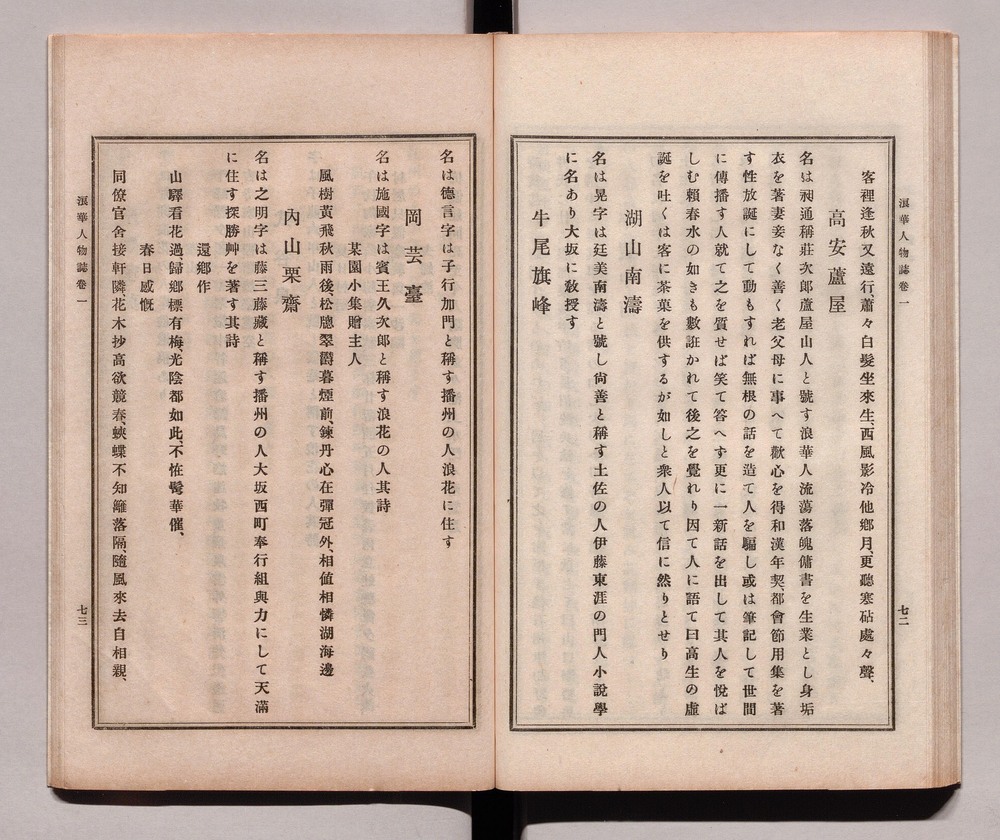 浪華人物誌卷一
七二
客裡逢秋又遠行、蕭々白髮坐來生、西風影冷他鄕月、更聽寒砧處々聲、
高安蘆屋
名は昶通稱莊次郎蘆屋山人と號す浪華人流蕩落魄傭書を生業とし身垢
衣を著妻妾なく善く老父母に事へて歡心を得和漢年契都會節用集を著
す性放誕にして動もすれば無根の話を造て人を騙し或は筆記して世間
に傳播す人就て之を質せば笑て答へす更に一新話を出して其人を悅ば
しむ賴春水の如きも數誑かれて後之を覺れり因て人に語て曰高生の虛
誕を吐くは客に茶菓を供するが如しと衆人以て信に然りとせり
湖山南濤
名は晃字は廷美南濤と號し尙善と稱す土佐の人伊藤東涯の門人小說學
に名あり大坂に敎授す
牛尾旗峰
名は德言字は子行加門と稱す播州の人浪花に住す
岡芸臺
名は施國字は賓王久次郎と稱す浪花の人其詩
某園小集贈主人
風樹黃飛秋雨後松牕翠爵暮煙前、鍊丹心在彈冠外、相値相憐湖海邊
內山栗齋
名は之明字は藤三藤藏と稱す播州の人大坂西町奉行組與力にして天滿
に住す探勝艸を著す其詩
還鄕作
山驛看花過歸鄕標有梅光陰都如此、不恠鬢華催、
春日感慨
同僚官舍接軒隣花木抄高欲競春、蛺蝶不知籬落隔隨風來去自相親、
浪華人物誌卷一
七三